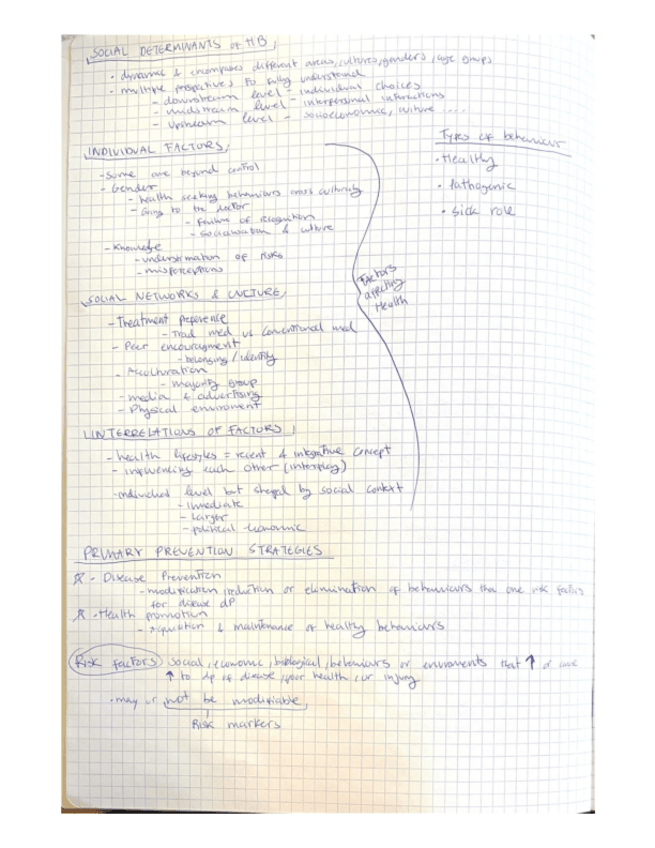 SOCIAL DETERMINANTS OF HB
• dynamic & encompases different areas, cultures, genders, age groups
- multiple prespectives to fully understand
- downstream level - individual choices
- midstream level - interpersonal interactions
- upstream level - socioeconomic, culture ....
Types of behaviour
• Healthy
• Pathogenic
• sick role
INDIVIDUAL FACTORS
- some are beyond control
- Gender
- health seeking behaviours cross culturaly
- Going to the doctor
- failure of recognition
- socialisation & culture
- Knowledge
- understimation of risks
- misperceptions
Factors
affecting
Health
SOCIAL NETWORKS & CULTURE
- Treatment preference
- Trad med vs conventional med
- Peer encouragment
- belonging / identity
- Acculturation
- majority group
- media & advertising
- Physical enviroment
INTERRELATIONS OF FACTORS
- health lifestyles = recent & integrative concept
- influencing each other (interplay)
- individual level but shaped by social context
- imediate
- Larger
- political-economic
PRIMARY PREVENTION STRATEGIES
• Disease Prevention
- modification, reduction or elimination of behaviours that are risk factors
for disease dP
• Health promotion
- aquisition & maintenance of healthy behaviours
Risk factors social, economic, biological, behaviours or enviroments that ↑ or
↑ to dp of disease, poor health, or injury
• may or not be modifiable
Risk markers